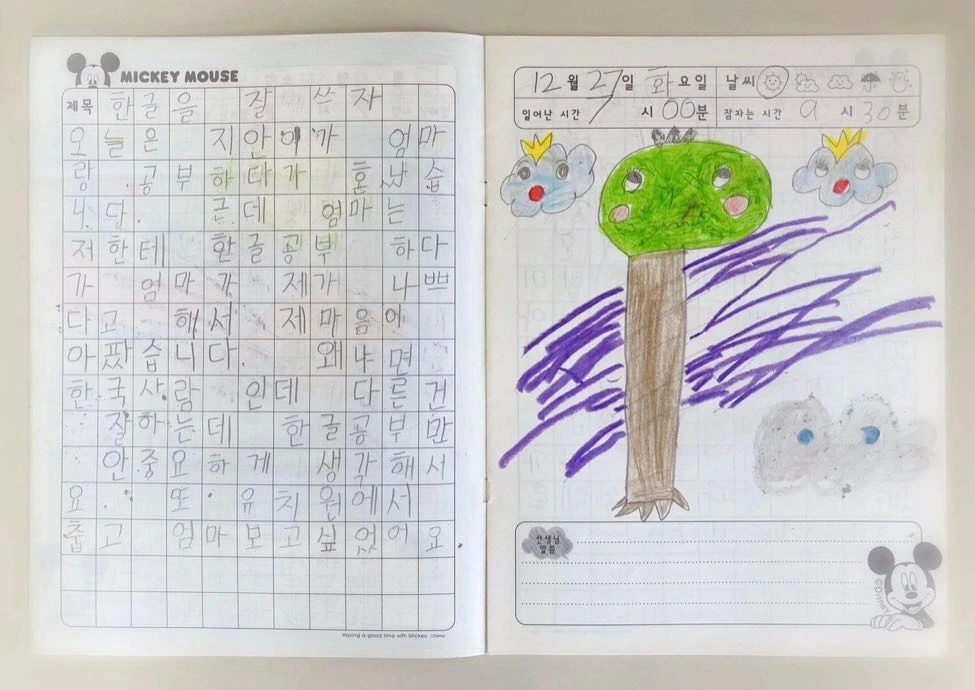 MICKEY MOUSE
제목 한글을 잘 쓰자
오늘은 지안이가 엄마
랑 공부하다가 혼났습
니다. 근데 엄마는
저한테 한글공부 하다
가 엄마가 제가 나쁘
다고 해서 제마음이
아팠습니다. 왜냐면
한국사람인데 다른건
잘하는데 한글공부만
안중요하게 생각해서
요. 또 유치원에서
춥고 엄마보고싶었어요
Having a good time with Mickey ©Disney
12월 27일 화요일 날씨
일어난 시간 7시 00분 잠자는 시간 9시 30분
선생님
말씀
©Disney